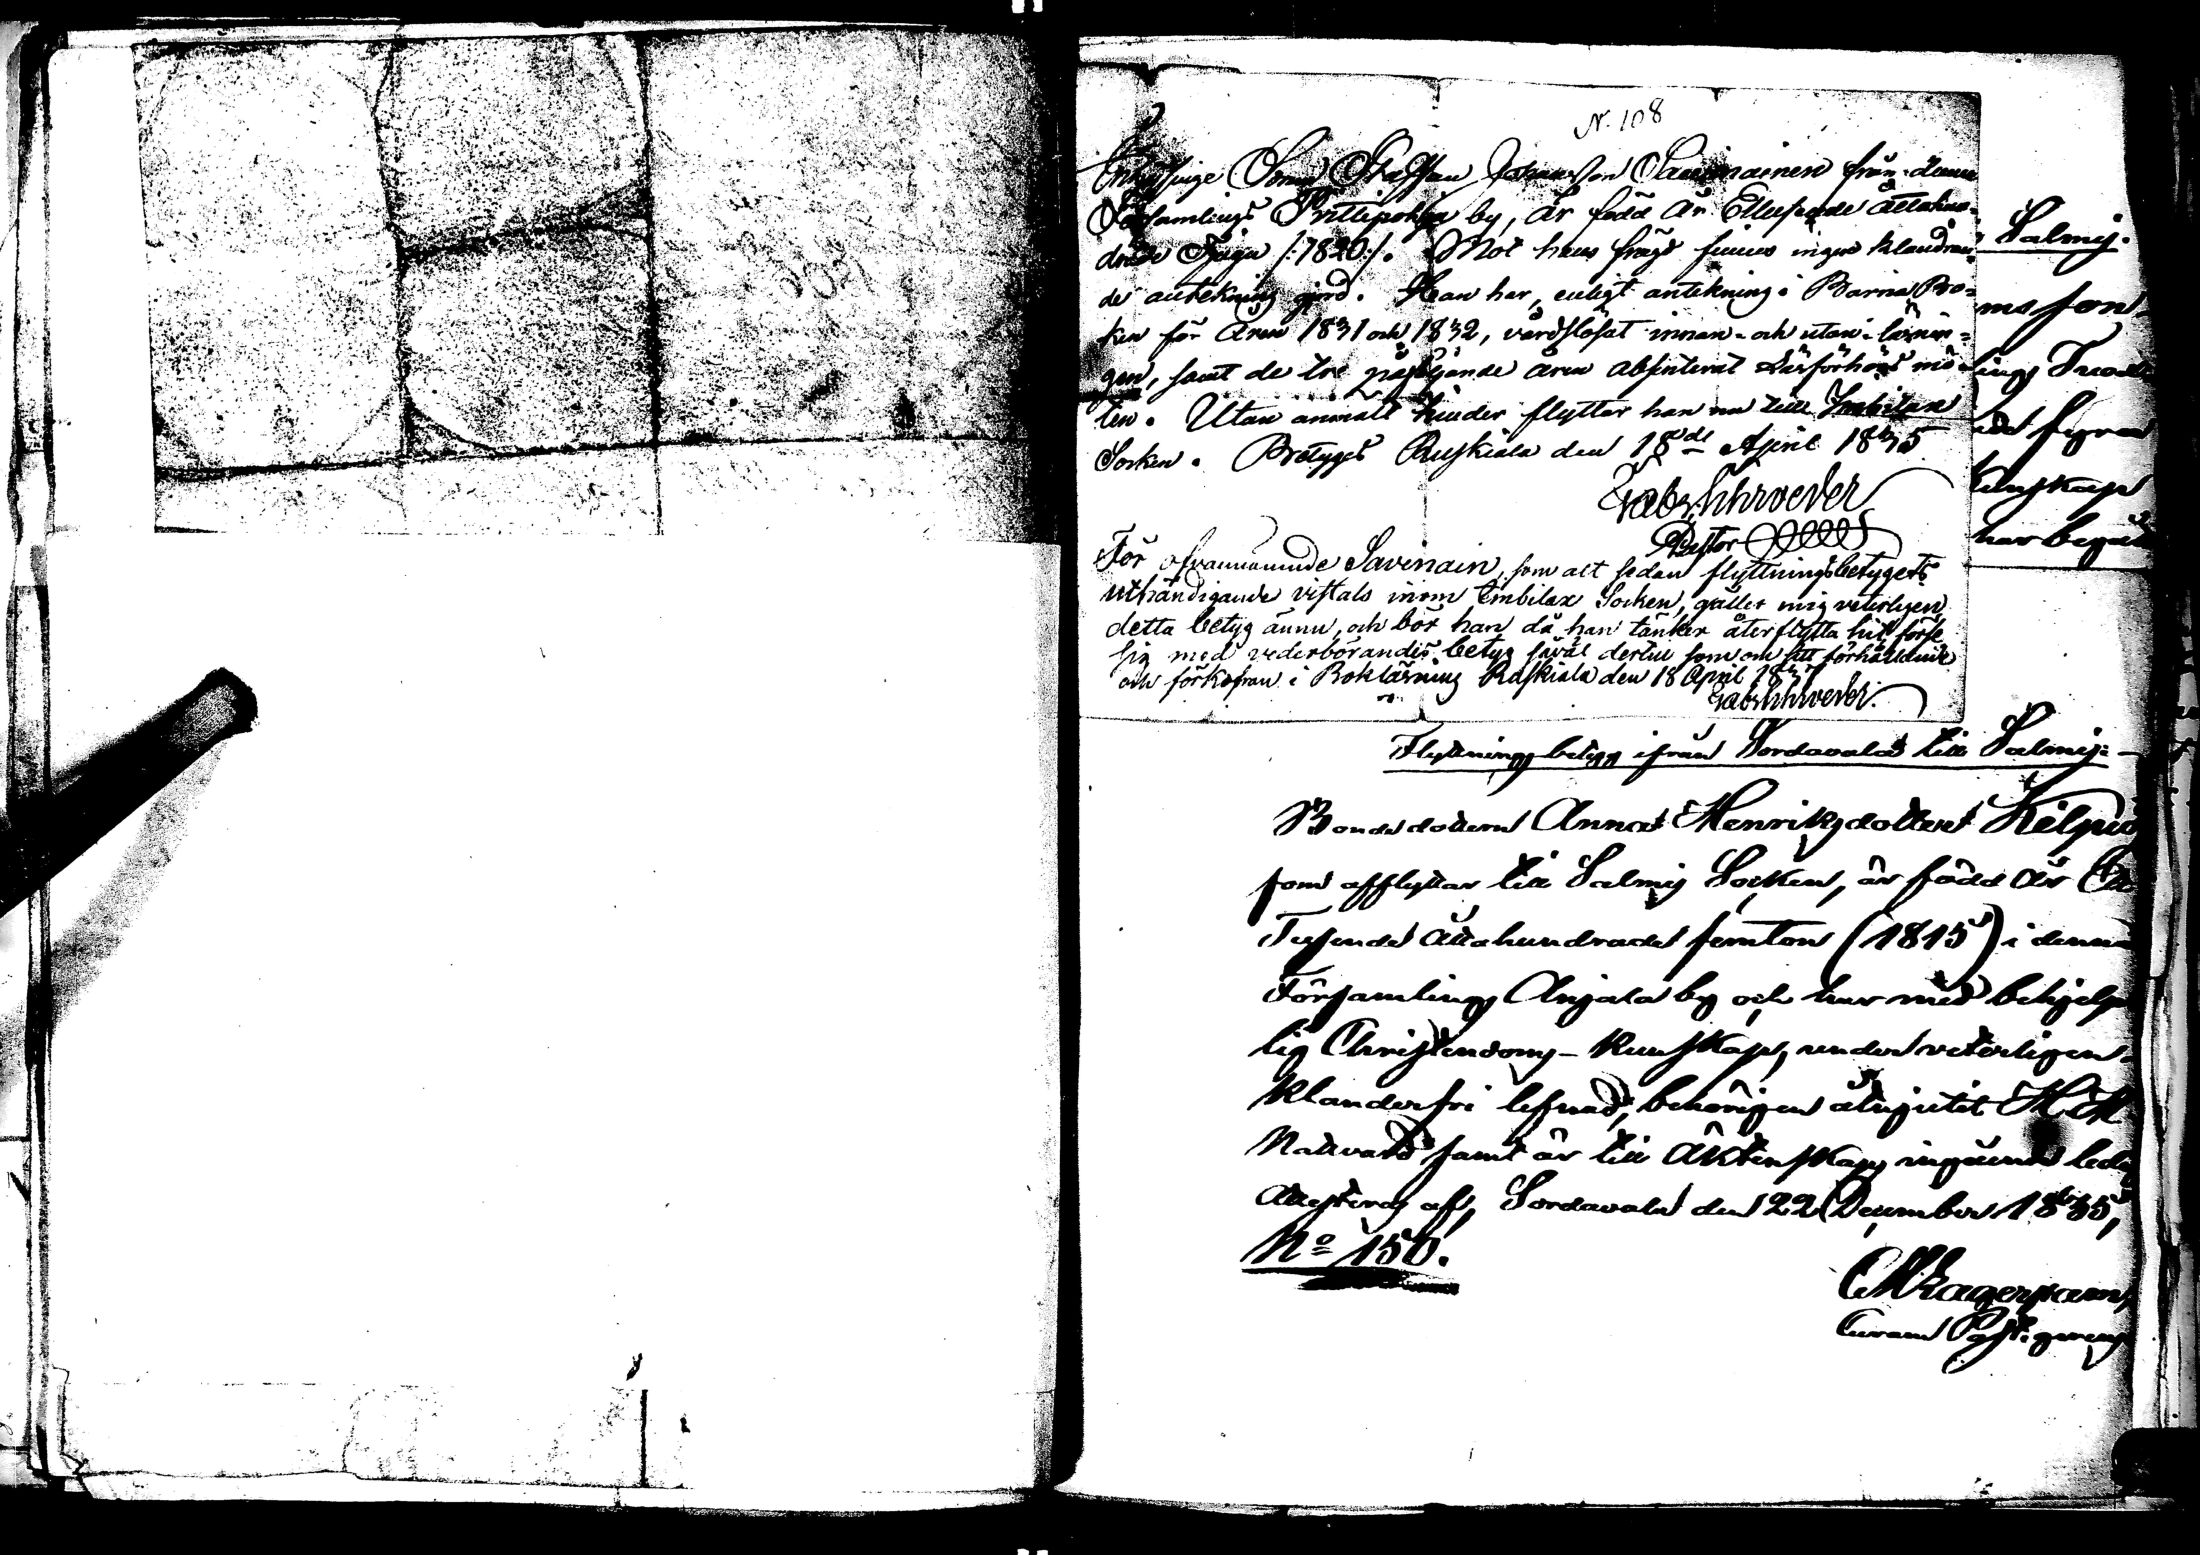 N. 108
Son Staffan Johansson Savinainen från denna
Församlings by, är född År Ettusende Åttahun-
drade Tjugu /:1820:/. Mot hans frägd finnes ingen klandran-
de antekning gjord. Han har, enligt antekning i Barna Bo-
ken för Åren 1831 och 1832, vårdslösat innan- och utan-läsnin-
gen, samt de tre påföljande åren absenterat Läsförhörs mö-
ten. Utan anmält hinder flyttar han nu till Imbilax
Socken. Betygas Ruskiala den 18de April 1835
Gab. Schroeder
Pastor
För ofvannämnde Savinain, som alt sedan flyttningsbetygets
uthändigande vistats inom Imbilax Socken, gäller mig veterligen
detta betyg ännu, och bör han då han tänker återflytta hit förse
sig med vederbörandes betyg såväl dertill som om sitt förhållande
och förkofran i Bokläsning Ruskiala den 18 April
Gab. Schroeder.
Salmis.
ns son
lings
kunskap
har begått
Flyttnings betyg ifrån Sordavala till Salmis:
Bondedottern Anna Henriksdotter Kilpiö
som afflyttar till Salmis Socken, är född år Ett
Tusende Åttahundrade femton (1815) i denna
Församlings Anjala by och har med behjelp-
lig Christendoms-Kunskap, under veterligen
klanderfri lefnad, behörigen åtnjutit H. H.
Nattvard samt är till Äktenskaps ingående ledig
Attesteras af, Sordavala den 22 December 1835,
No 150.
Lagerstam
Past.